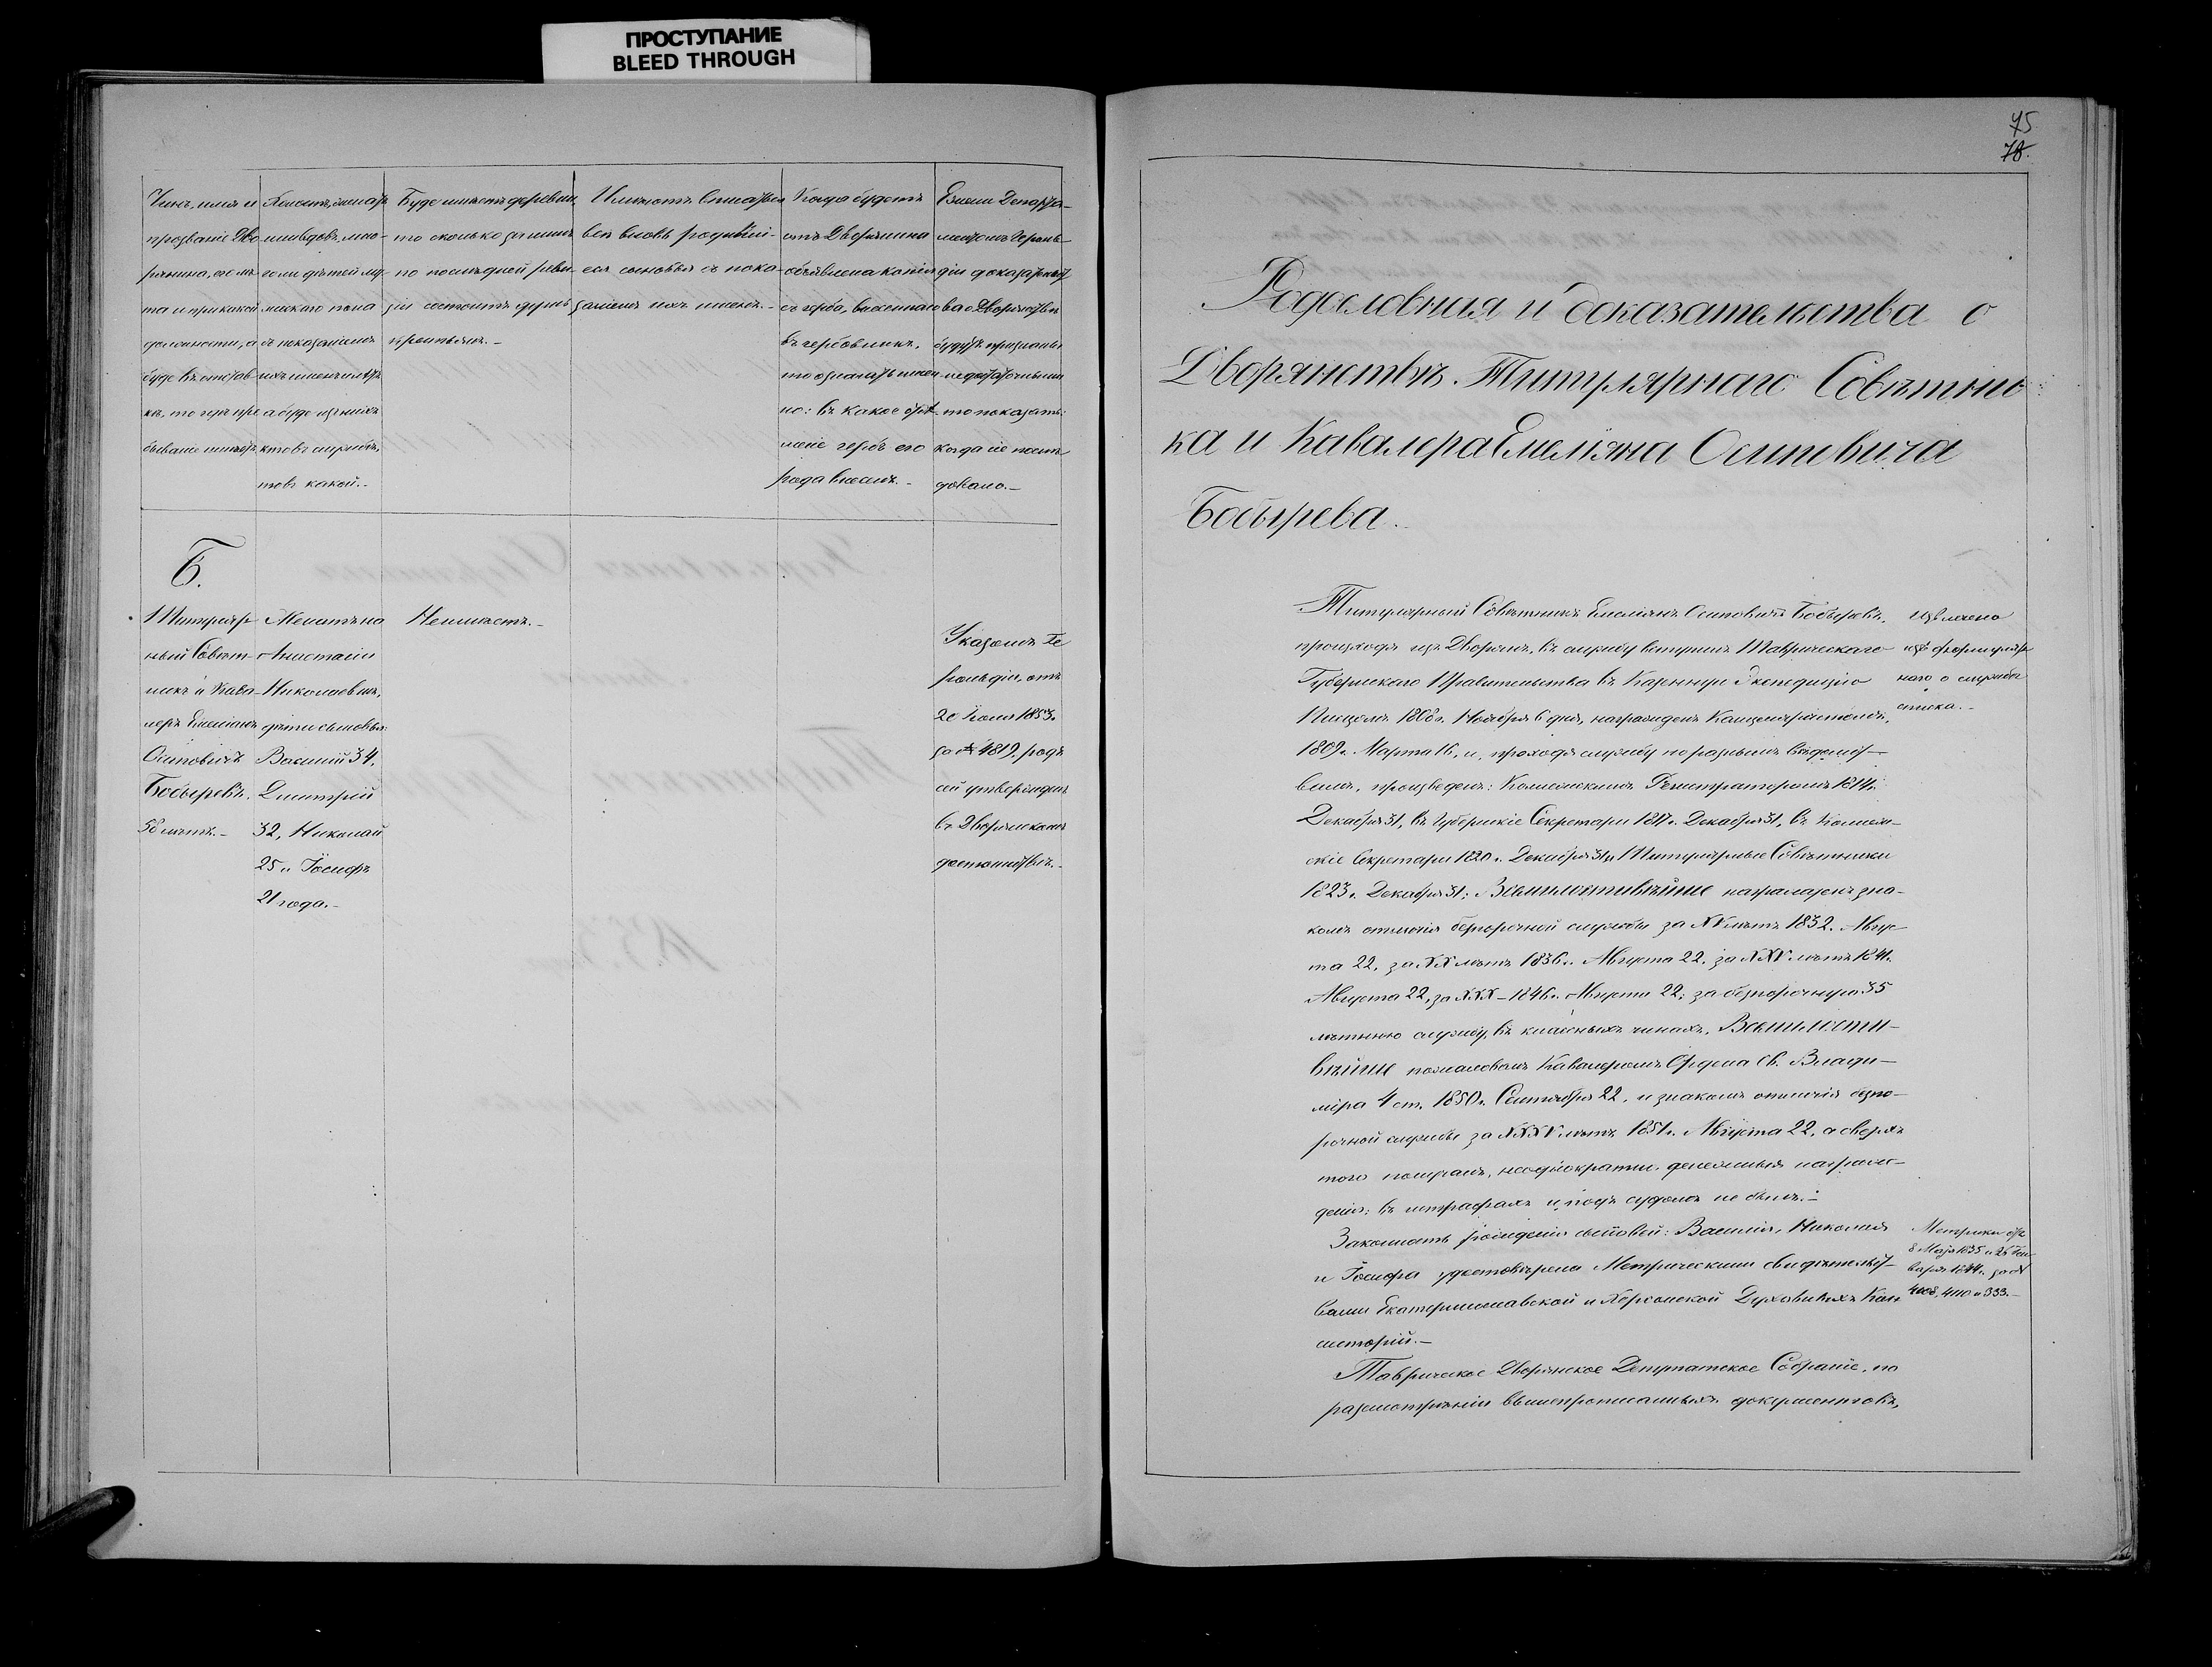 ПРОСТУПАНИЕ
BLEED THROUGH
Чинъ, имя и
прозваніе Дво
рянина, его лѣ
та и при какой
должности, а
буде въ отстав
кѣ, то гдѣ пре
бываніе имѣетъ
Холостъ, женатъ
или вдовъ, мно-
го ли дѣтей му-
жескаго пола
съ показаніемъ
ихъ именъ и лѣтъ
а буде изъ нихъ
кто въ службѣ,
то въ какой.-
Буде имѣетъ деревни,
то сколько за нимъ
по послѣдней реви-
зіи состоитъ душъ
крестьянъ.-
Имѣютъ вписаться
все вновь родивші-
еся сыновья съ пока-
заніемъ ихъ именъ.-
Когда будетъ
отъ Дворянина
объявлена копія
съ герба, внесеннаго
въ гербовникъ,
то означать имен-
но: въ какое отдѣ-
леніе гербъ его
рода внесенъ.-
Если Департа-
ментомъ Героль-
діи доказательст
ва о Дворянствѣ
будутъ признаны
недостаточными
то показать:
когда сіе послѣ
довало.-
Б.
Титуляр
ный Совѣт-
никъ и Кава-
леръ Емельянъ
Осиповичъ
Бобыревъ.
58 лѣтъ.-
Женатъ на
Анастасіи
Николаевнѣ,
дѣти сыновья:
Василій 34,
Дмитрій
32, Николай
25 и Іосифъ
21 года.-
Неимѣетъ.-
Указомъ Ге
рольдіи, отъ
20 Іюля 1853 г.
за № 4819, родъ
сей утвержденъ
въ Дворянскомъ
достоинствѣ.-
75
78.
Родословная и доказательства о
Дворянствѣ Титулярнаго Совѣтни
ка и Кавалера Емельяна Осиповича
Бобырева.
Титулярный Совѣтникъ Емельянъ Осиповичъ Бобыревъ,
происходя изъ Дворянъ, въ службу вступилъ Таврическаго
Губернскаго Правительства въ Казенную Экспедицію
Писцомъ 1808 г. Ноября 6 дня, награжденъ Канцеляристомъ,
1809 г. Марта 16, и, проходя службу по разнымъ вѣдомст-
вамъ, произведенъ: Коллежскимъ Регистраторомъ 1814 г.
Декабря 31, въ Губернскіе Секретари 1817 г. Декабря 31, въ Коллеж-
скіе Секретари 1820 г. Декабря 31 и Титулярные Совѣтники
1823 г. Декабря 31; Всемилостивѣйше награжденъ зна-
комъ отличія безпорочной службы за XV лѣтъ 1832. Авгус-
та 22, за XX лѣтъ 1836 г. Августа 22, за XXV лѣтъ 1841 г.
Августа 22, за XXX - 1846 г. Августа 22; за безпорочную 35
лѣтнюю службу, въ классныхъ чинахъ, Всемилости-
вѣйше пожалованъ Кавалеромъ Ордена Св. Влади-
міра 4 ст. 1850 г. Сентября 22, и знакомъ отличія безпо-
рочной службы за XXXV лѣтъ 1851 г. Августа 22, а сверхъ
того получалъ, неоднократно, денежныя награж-
денія: въ штрафахъ и подъ судомъ не былъ.-
Законность рожденія сыновей: Василія, Николая
и Іосифа удостовѣрена Метрическими свидѣтельст-
вами Екатеринославской и Херсонской Духовныхъ Кон
систорій.-
Таврическое Дворянское Депутатское Собраніе, по
разсмотрѣніи вышепрописанныхъ документовъ,
Извлечено
изъ формуляр
наго о службѣ
списка.-
Метрики отъ
8 Мая 1835 и 25 Ген-
варя 1844 г. за №
4108, 4110 и 333.-